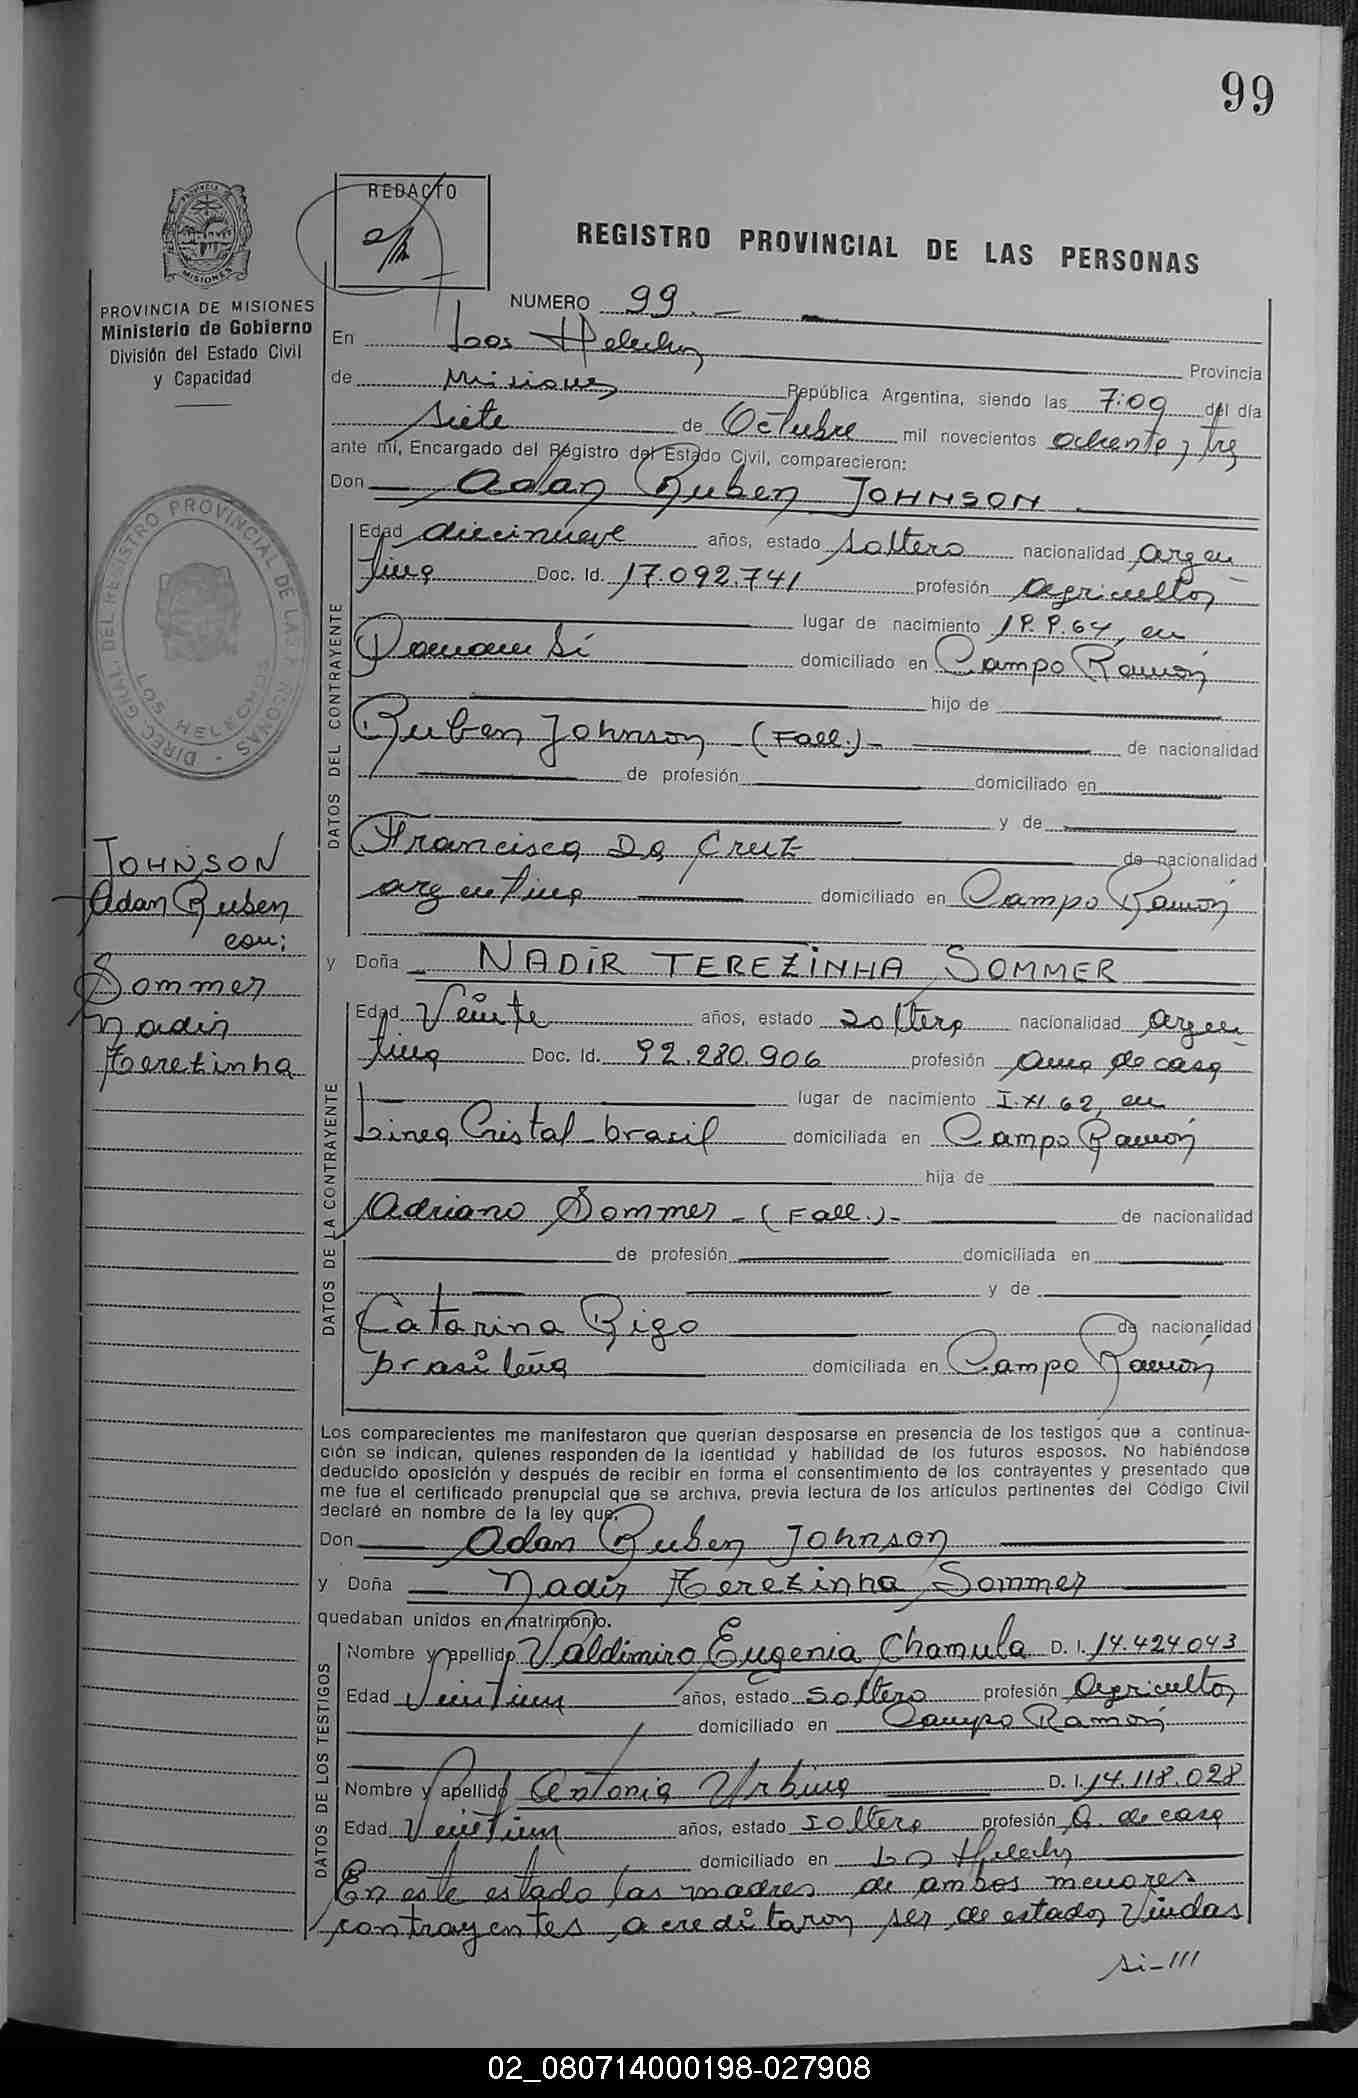 99
PROVINCIA DE
MISIONES
REDACTO
REGISTRO PROVINCIAL DE LAS PERSONAS
PROVINCIA DE MISIONES
Ministerio de Gobierno
División del Estado Civil
y Capacidad
NUMERO 99.-
En Los Helechos Provincia
de Misiones República Argentina, siendo las 7:09 del día
siete de Octubre mil novecientos ochenta y tres
ante mí, Encargado del Registro del Estado Civil, comparecieron:
Don Adan Ruben JOHNSON
DIREC. GRAL. DEL REGISTRO PROVINCIAL DE LAS PERSONAS
LOS HELECHOS
DATOS DEL CONTRAYENTE
Edad diecinueve años, estado soltero nacionalidad argen
tina Doc. Id. 17.092.741 profesión Agricultor
lugar de nacimiento en
Panambí domiciliado en Campo Ramón
hijo de
Ruben Johnson (Fall.)- de nacionalidad
de profesión domiciliado en
y de
Francisca Da Cruz de nacionalidad
argentina domiciliado en Campo Ramón
JOHNSON
Adan Ruben
con:
Sommer
Nadir
Terezinha
y Doña NADIR TEREZINHA SOMMER
DATOS DE LA CONTRAYENTE
Edad Veinte años, estado soltera nacionalidad argen
tina Doc. Id. 92.280.906 profesión ama de casa
lugar de nacimiento I.XI.62, en
Linea Cristal-brasil domiciliada en Campo Ramón
hija de
Adriano Sommer-(Fall.)- de nacionalidad
de profesión domiciliada en
y de
Catarina Rigo de nacionalidad
brasileña domiciliada en Campo Ramón
Los comparecientes me manifestaron que querían desposarse en presencia de los testigos que a continua-
ción se indican, quienes responden de la identidad y habilidad de los futuros esposos. No habiéndose
deducido oposición y después de recibir en forma el consentimiento de los contrayentes y presentado que
me fue el certificado prenupcial que se archiva, previa lectura de los artículos pertinentes del Código Civil
declaré en nombre de la ley que:
Don Adan Ruben Johnson
y Doña Nadir Terezinha Sommer
quedaban unidos en matrimonio.
DATOS DE LOS TESTIGOS
Nombre y apellido Valdimiro Eugenia Chamula D. I. 14.424.043
Edad Veintiun años, estado soltero profesión Agricultor
domiciliado en Campo Ramón
Nombre y apellido Antonia Urbina D. I. 14.118.028
Edad Veintiun años, estado soltera profesión A. de casa
domiciliado en Los Helechos
En este estado las madres de ambos menores
contrayentes acreditaron ser de estados Viudas
si-///
02_080714000198-027908